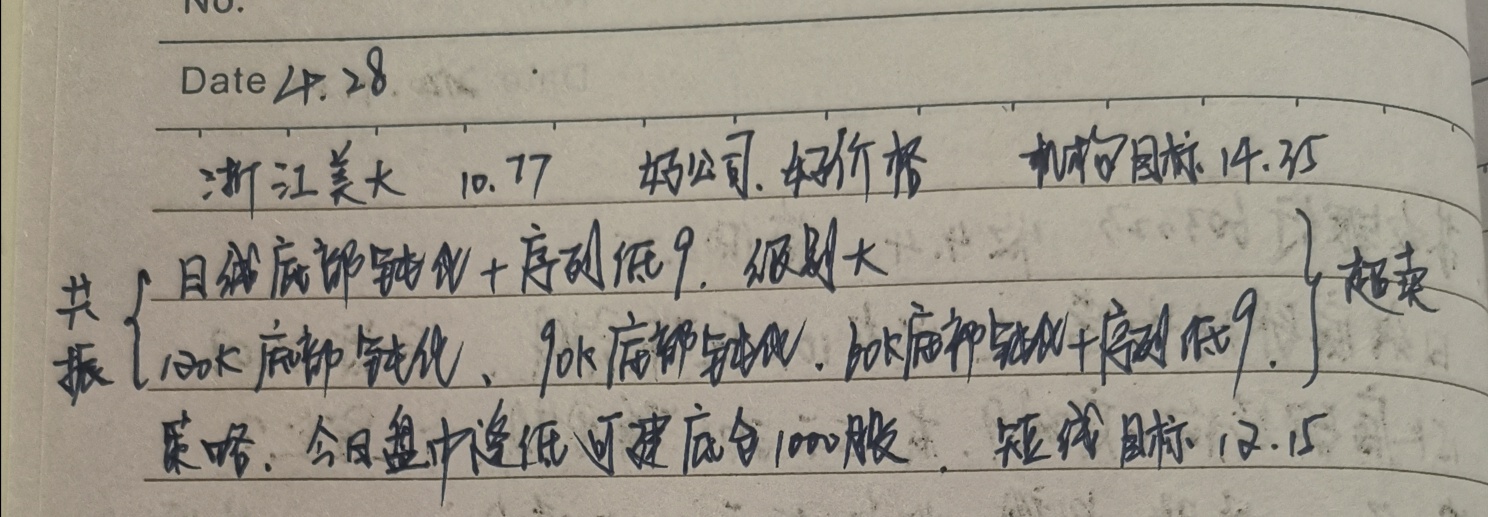 No.
Date 4.28
浙江美大 10.77 好公司.好价格 机构目标14.35
共振
日线底部钝化+序列低9. 级别大
120K底部钝化、90K底部钝化、60K底部钝化+序列低9.
超卖
策略、今日盘中逢低可建底仓1000股. 短线目标12.15